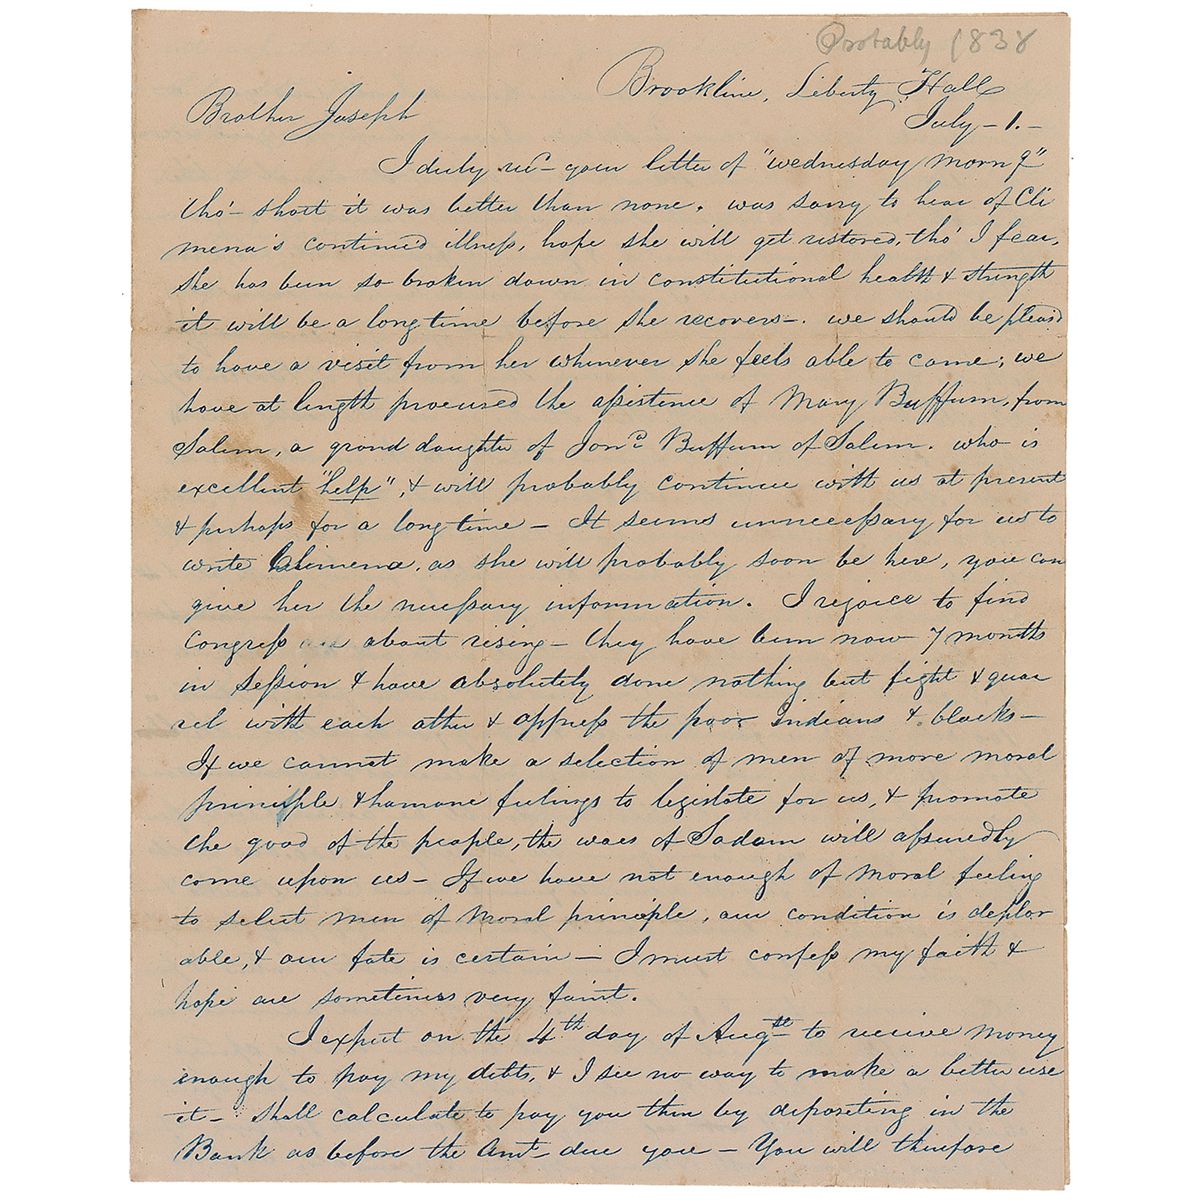 Probably 1838
Brookline, Liberty Hall
July - 1. -
Brother Joseph
I duly recd - your letter of "wednesday morng"
tho' - short it was better than none. was sorry to hear of Cli
mena's continued illness, hope she will get restored, tho' I fear,
she has been so broken down in constitutional health & strength
it will be a long time before she recovers -. we should be pleasd
to have a visit from her whenever she feels able to come; we
have at length procured the assistence of Mary Buffum, from
Salem, a grand daughter of Jona Buffum of Salem. who is
excellent "help", & will probably continue with us at present
& perhaps for a long time - It seems unnecessary for us to
write Climena, as she will probably soon be here, you can
give her the necessary information. I rejoice to find
Congress are about rising - they have been now 7 months
in session & have absolutely done nothing but fight & quar
rel with each other & oppress the poor Indians & blacks -
If we cannot make a selection of men of more moral
principle & humane feelings to legislate for us, & promote
the good of the people, the woes of Sodom will assuredly
come upon us - If we have not enough of moral feeling
to select men of Moral principle, our condition is deplor
able, & our fate is certain - I must confess my faith &
hope are sometimes very faint.
I expect on the 4th day of Augst to receive money
enough to pay my debts, & I see no way to make a better use
it - shall calculate to pay you then by depositing in the
Bank as before the Amt due you - You will therefore